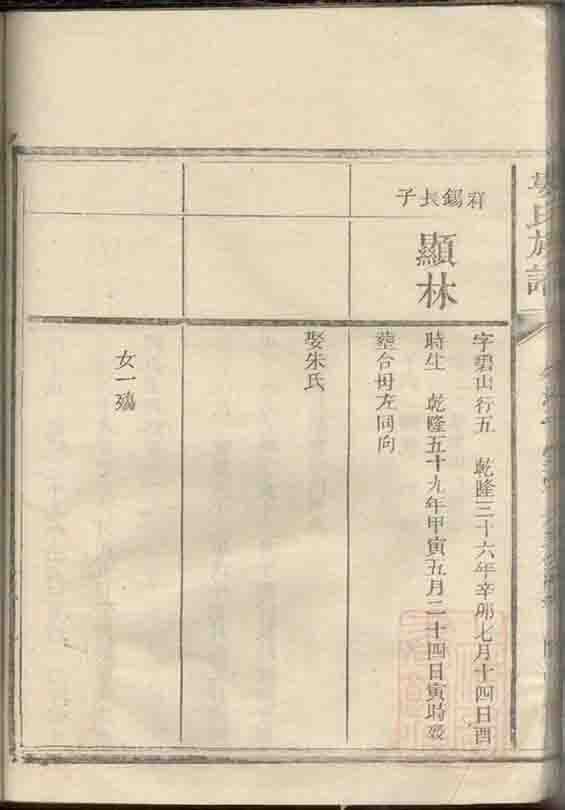 氏族譜
祥錫長子
顯林
字碧山行五 乾隆三十六年辛卯七月十四日酉
時生 乾隆五十九年甲寅五月二十四日寅時歿
葬合母左同向
娶朱氏
女一殤